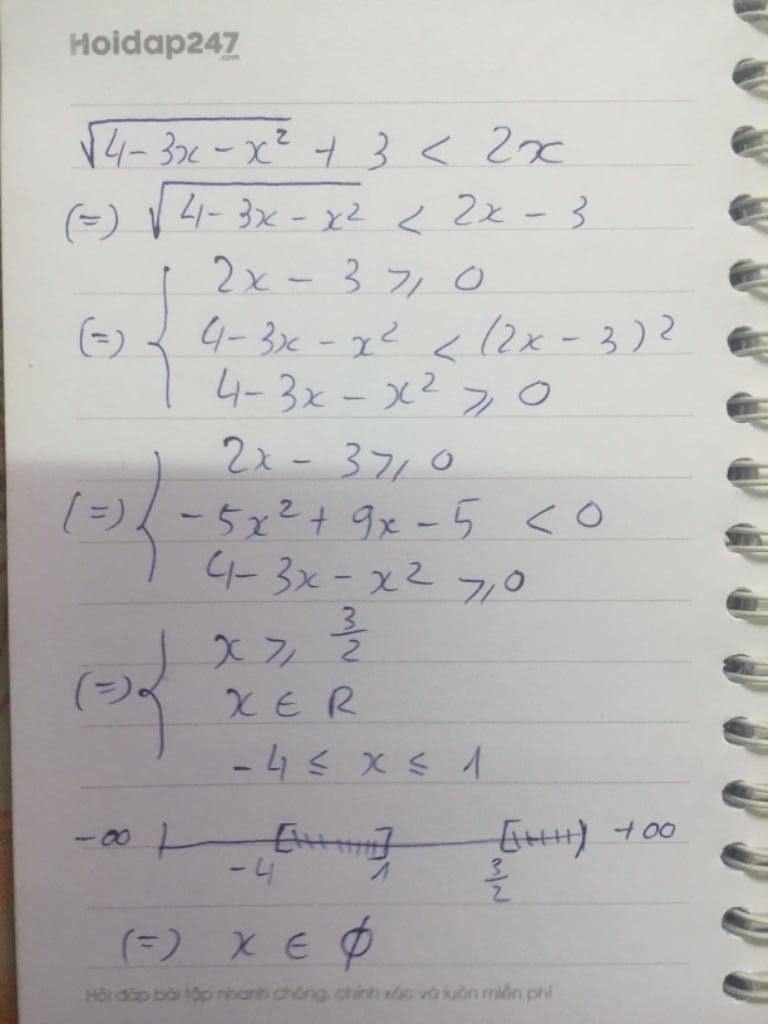 Hoidap247
.com
√(4-3x-x²) + 3 < 2x
(=) √(4-3x-x²) < 2x - 3
(=) { 2x - 3 ⩾ 0
4-3x-x² < (2x-3)²
4-3x-x² ⩾ 0
(=) { 2x - 3 ⩾ 0
-5x² + 9x - 5 < 0
4-3x-x² ⩾ 0
(=) { x ⩾ 3/2
x ∈ R
-4 ≤ x ≤ 1
-∞ [ ] [ ) +∞
-4 1 3/2
(=) x ∈ ∅
Hỏi đáp bài tập nhanh chóng, chính xác và luôn miễn phí